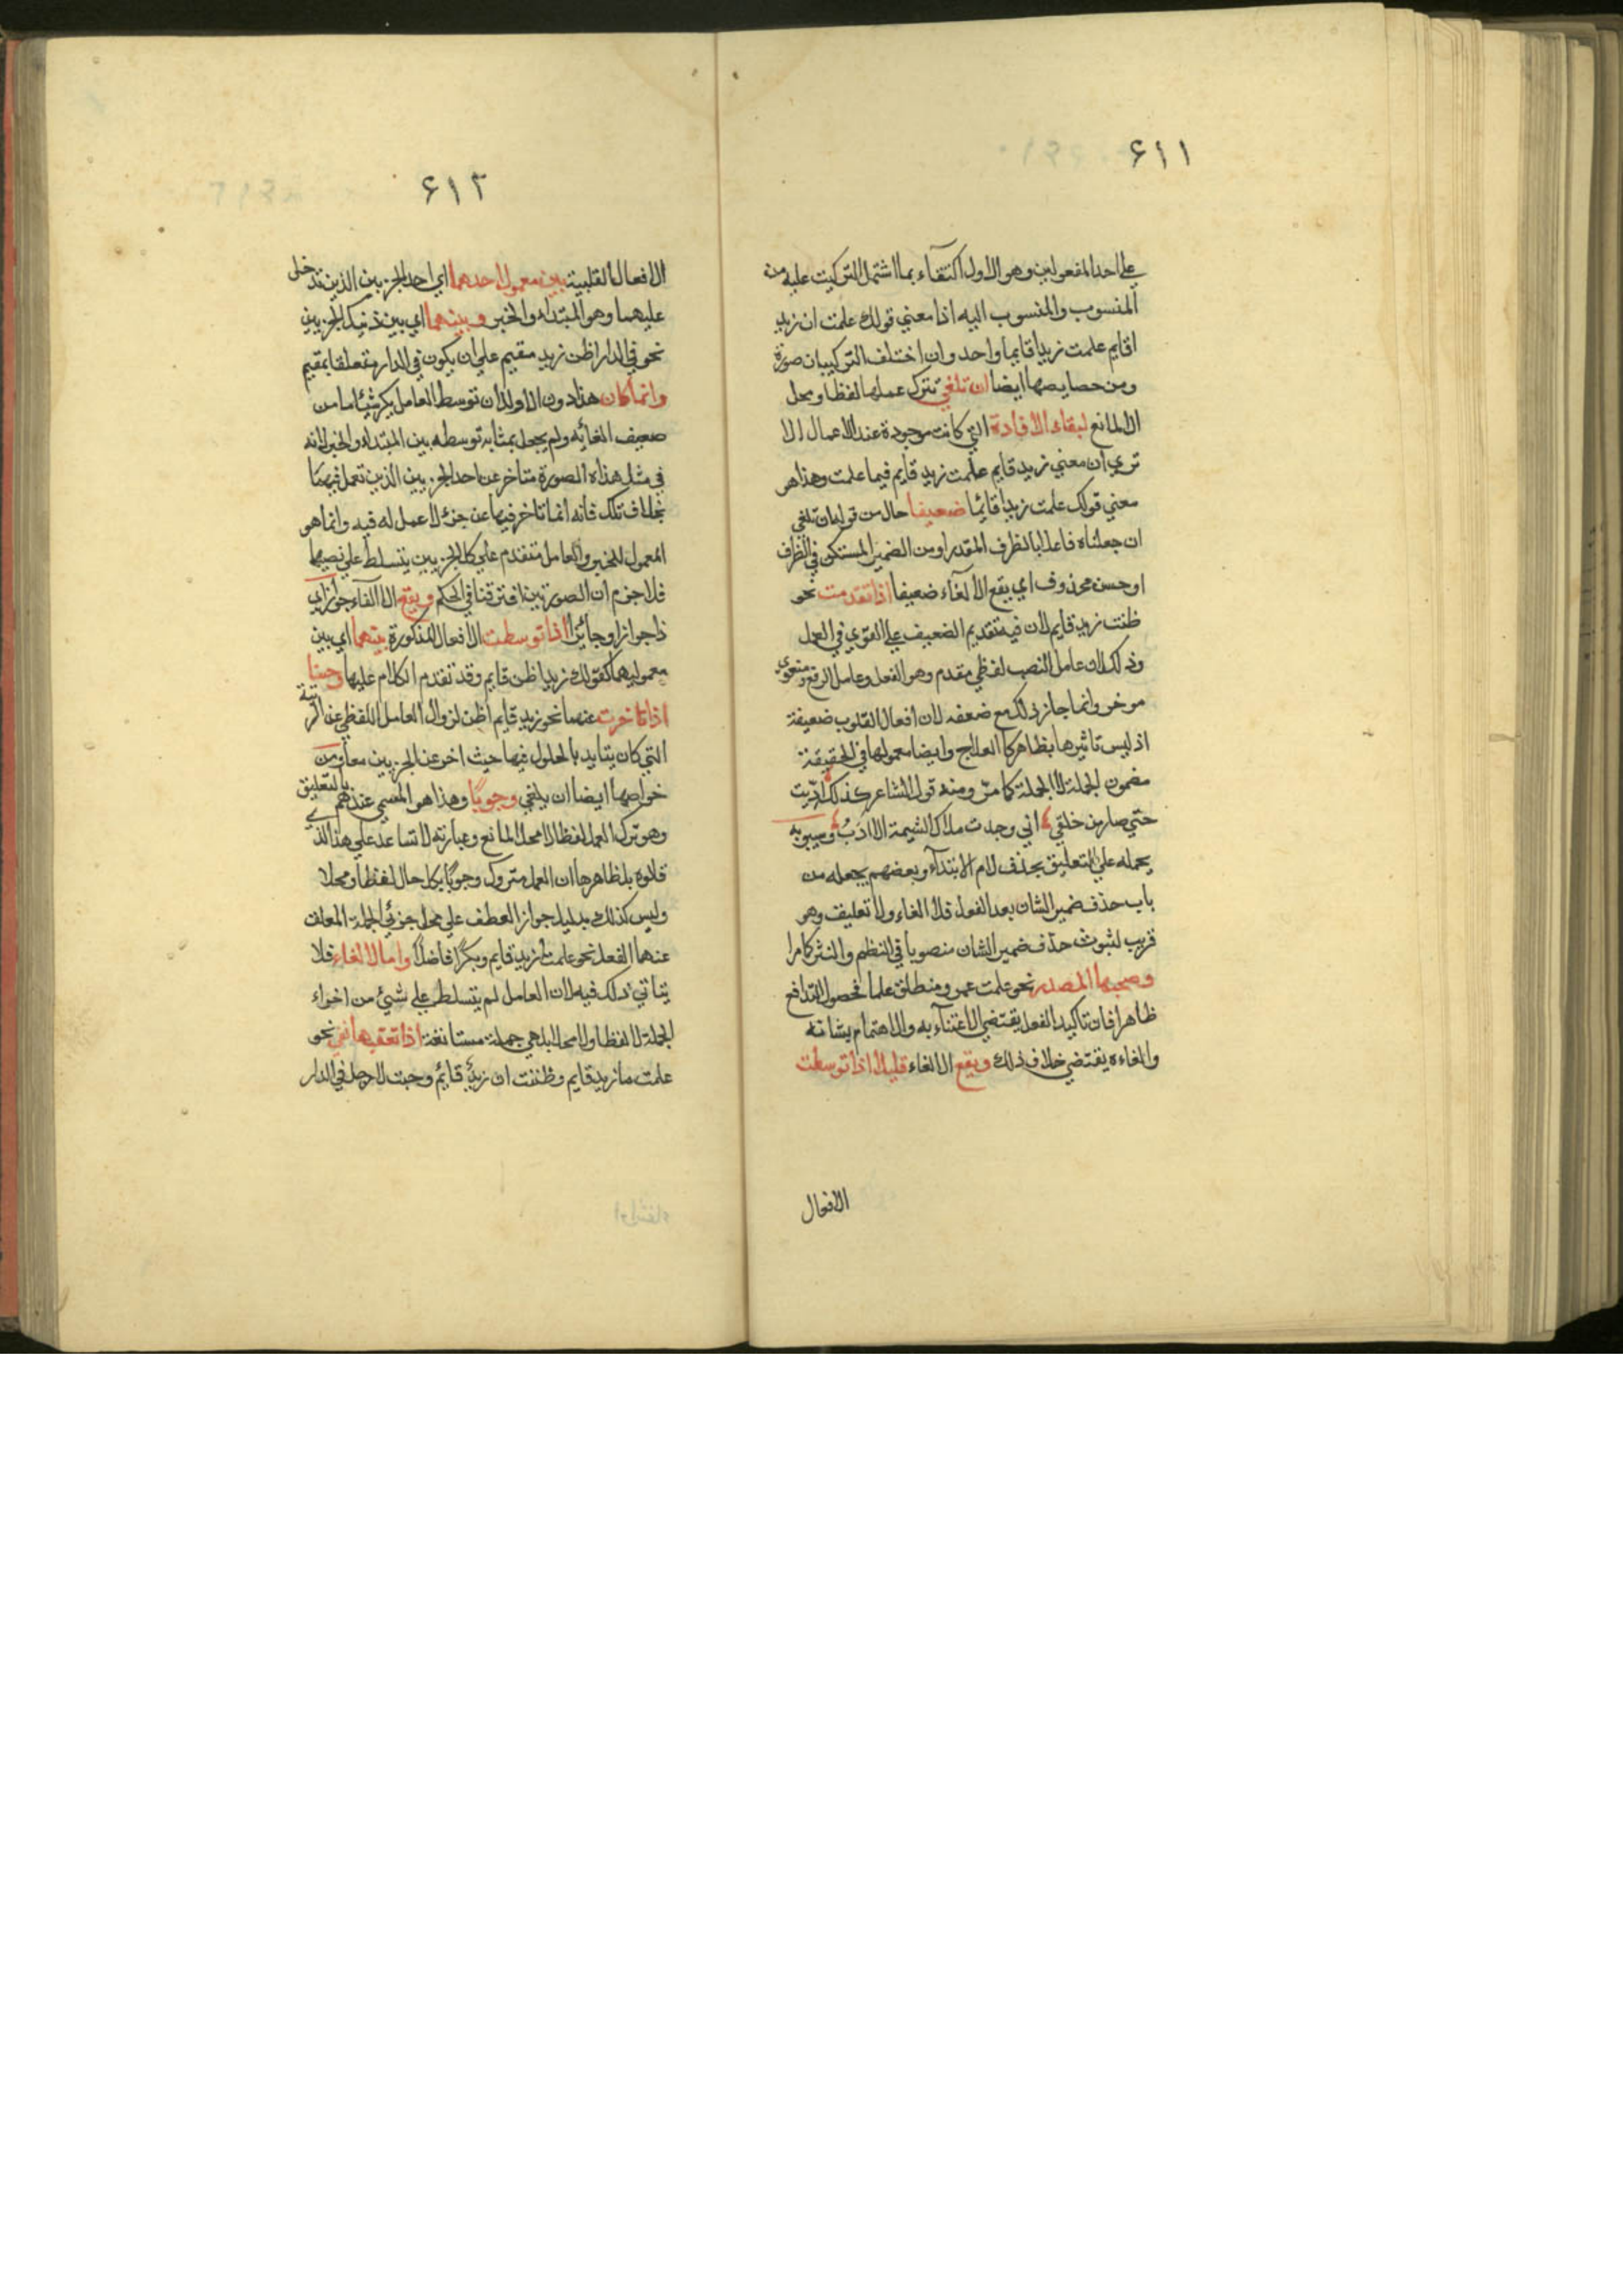 ٤١١
علي احد المفعولين وهو الاول اكتفاء بما اشتمل التركيب عليه من
المنسوب والمنسوب اليه اذا معني قولك علمت ان زيد
اقايم علمت زيدا قايما واحد وان اختلف التركيبان صورة
ومن خصايصها ايضا ان تلغي تترك عملها لفظا ومحل
الالمانع لبقاء الافادة التي كانت موجودة عند الاعمال الا
تري ان معني زيد قايم علمت زيد قايم فيما علمت وهذا هو
معني قولك علمت زيدا قائما ضعيفا حال من قوله ان تلغي
ان جعلناه فاعلا بالظرف المقدر او من الضمير المستكن في الظرف
او حسن محذوف اي يقع الالغاء ضعيفا اذا تقدمت نحو
ظننت زيد قايم لان فيه تقديم الضعيف علي القوي في العمل
وذلك لان عامل النصب لفظي مقدم وهو الفعل وعامل الرفع معنوي
موخر وانما جاز ذلك مع ضعفه لان افعال القلوب ضعيفة
اذ ليس تاثيرها بظاهر كالعلاج وايضا معمولها في الحقيقة
مضمون الجملة لا الجملة كما مر ومنه قول الشاعر كذلك ادبت
حتي صار من خلقي اني وجدت ملاك الشيمة الادب وسيبويه
يحمله علي التعليق بحذف لام الابتداء وبعضهم يجعله من
باب حذف ضمير الشان بعد الفعل فلا الغاء ولا تعليق وهو
قريب لثبوت حذف ضمير الشان منصوبا في النظم والنثر كما مر
وصحبها المصدر نحو علمت عمرو منطلق علما لحصول التدافع
ظاهرا فان تاكيد الفعل يقتضي الاعتناء به والاهتمام بشانه
والغاءه يقتضي خلاف ذلك ويقع الالغاء قليلا اذا توسطت
الافعال
٤١٢
الافعال القلبية بين معمول احدهما اي احد الجزيين الذين قد دخل
عليهما وهو المبتداء والخبر وبينهما اي بين ذينك الجزيين
نحو في الدار اظن زيد مقيم علي ان يكون في الدار متعلقا بمقيم
وانما كان هذا دون الاول لان توسط العامل يكر شيئا ما من
ضعيف الغائه ولم يجعل بمثابة توسطه بين المبتداء والخبر لانه
في مثل هذه الصورة متاخر عن احد الجزيين الذين تعمل فيهما
بخلاف تلك فانه انما تاخر فيها عن جزء لا عمل له فيه وانما هو
المعمول للخبر والعامل متقدم علي كلا الجزيين يتسلط علي نصبها
فلا جزم ان الصورتين افترقتا في الحكم ويقع الالغاء جوازا اي
ذا جواز او جائزا اذا توسطت الافعال المذكورة بينهما اي بين
معموليها كقولك زيد اظن قايم وقد تقدم الكلام عليها وحسنا
اذا تاخرت عنهما نحو زيد قايم اظن لزوال العامل اللفظي عن الرتبة
التي كان يتايد بالحلول فيها حيث اخر عن الجزيين معا ومن
خواصها ايضا ان يلغي وجوبا وهذا هو المسمي عندهم بالتعليق
وهو ترك العمل لفظا لا محلا لمانع وعبارته لا تساعد علي هذا الذي
قلاوه بل ظاهرها ان العمل متروك وجوبا بكل حال لفظا ومحلا
وليس كذلك بدليل جواز العطف علي محل جزئي الجملة المعلق
عنهما الفعل نحو علمت لزيد قايم وبكرا فاضلا واما الالغاء فلا
يتاتي ذلك فيه لان العامل لم يتسلط علي شيئ من اجزاء
الجملة لا لفظا ولا محلا بل هي جملة مستانفة اذا تعقبها نفي نحو
علمت ما زيد قايم وظننت ان زيد قايم وحسبت لا رجل في الدار